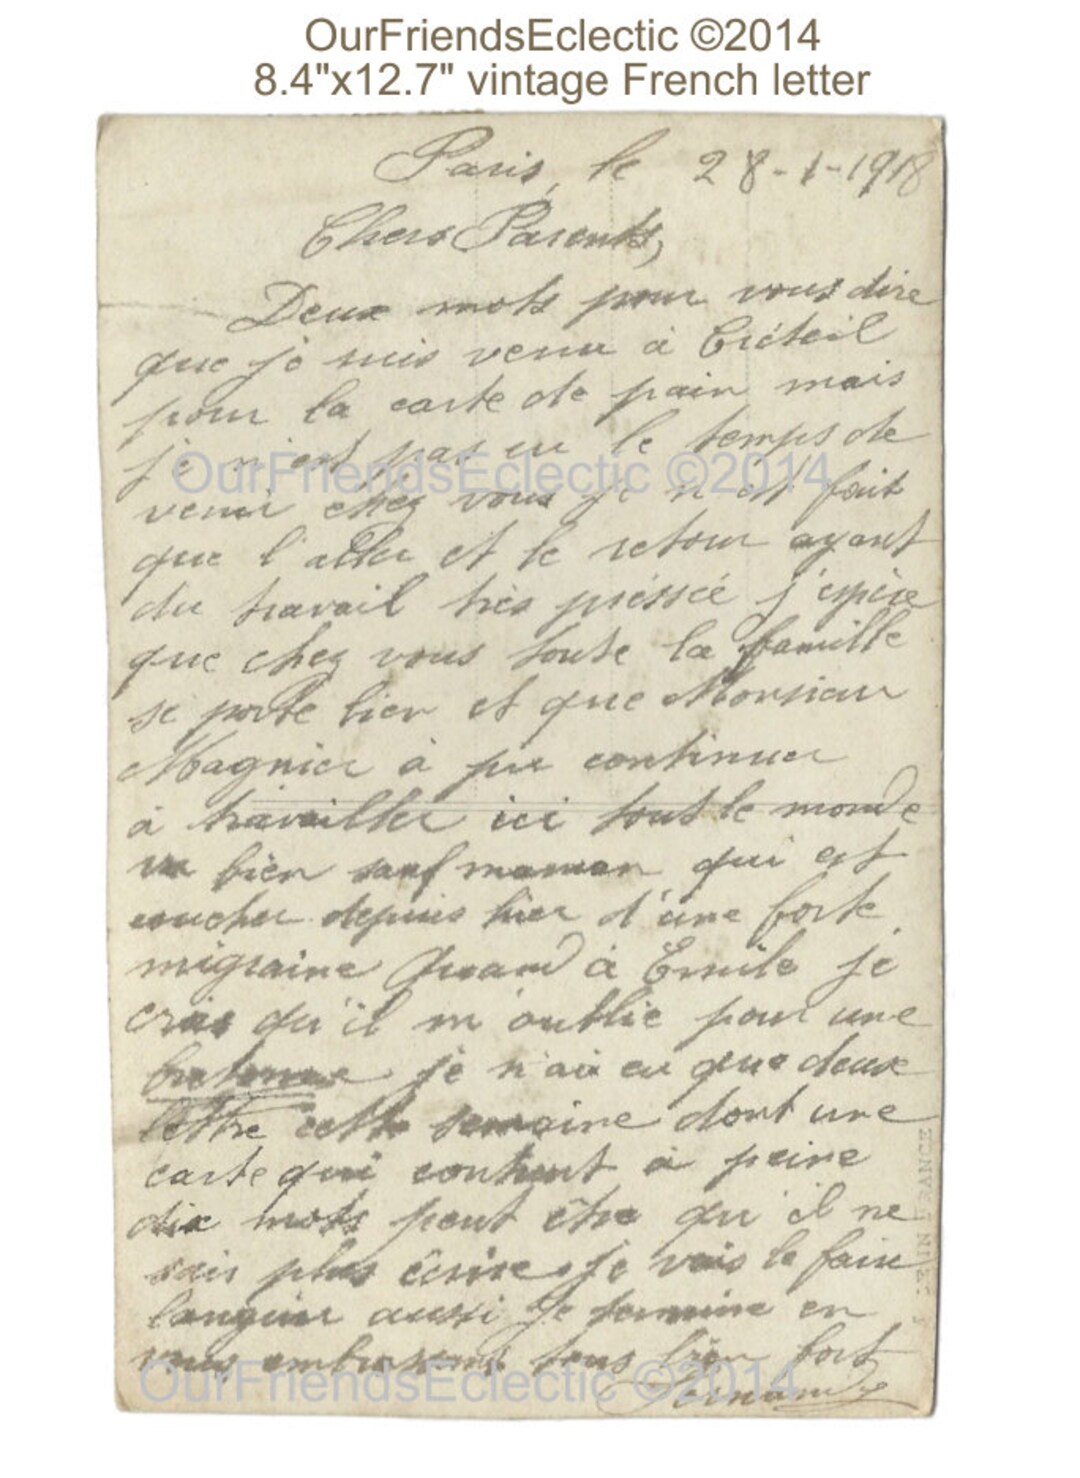 OurFriendsEclectic ©2014
8.4"x12.7" vintage French letter
Paris, le 28-1-1918
Chers Parents,
Deux mots pour vous dire
que je suis venu à Créteil
pour la carte de pain mais
je n'est pas eu le temps de
OurFriendsEclectic ©2014
venir chez vous je n'est fait
que l'aller et le retour ayant
du travail très préssée j'espère
que chez vous toute la famille
se porte bien et que Monsieur
Magnier à pu continuer
à travailler ici tout le monde
va bien sauf maman qui est
coucher depuis hier d'une forte
migraine Quand à Emile je
crois qu'il m'oublie pour une
bretonne je n'ai eu que deux
lettre cette semaine dont une
carte qui contient à peine
dix mots peut être qu'il ne
sais plus écrire je vais le faire
languir aussi Je termine en
vous embrassant tous bien fort
OurFriendsEclectic ©2014
Fernande
IN FRANCE